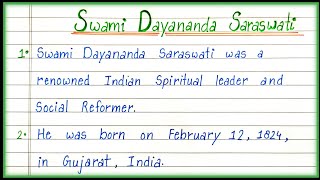 Swami Dayananda Saraswati
1. Swami Dayananda Saraswati was a
renowned Indian Spiritual leader and
Social Reformer.
2. He was born on February 12, 1824,
in Gujarat, India.